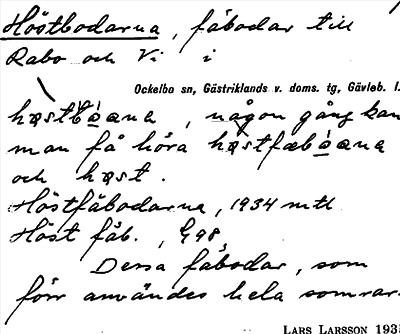 Höstbodarna, fäbodar till
Rabo och Vi i
Ockelbo sn, Gästriklands v. doms. tg, Gävleb. l.
man få höra
och hæst.
Höstfäbodarna, 1934 mtl
Höst fäb., G98
Dessa fäbodar, som
förr användes hela somrar.
LARS LARSSON 193